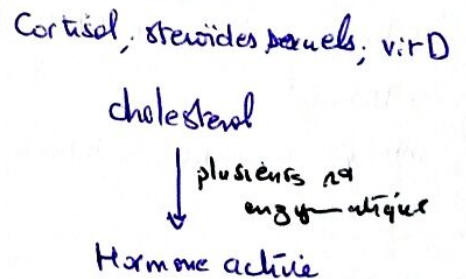 Cortisol, steroïdes sexuels, vit D
cholesterol
plusieurs rº
enzymatiques
Hormone active